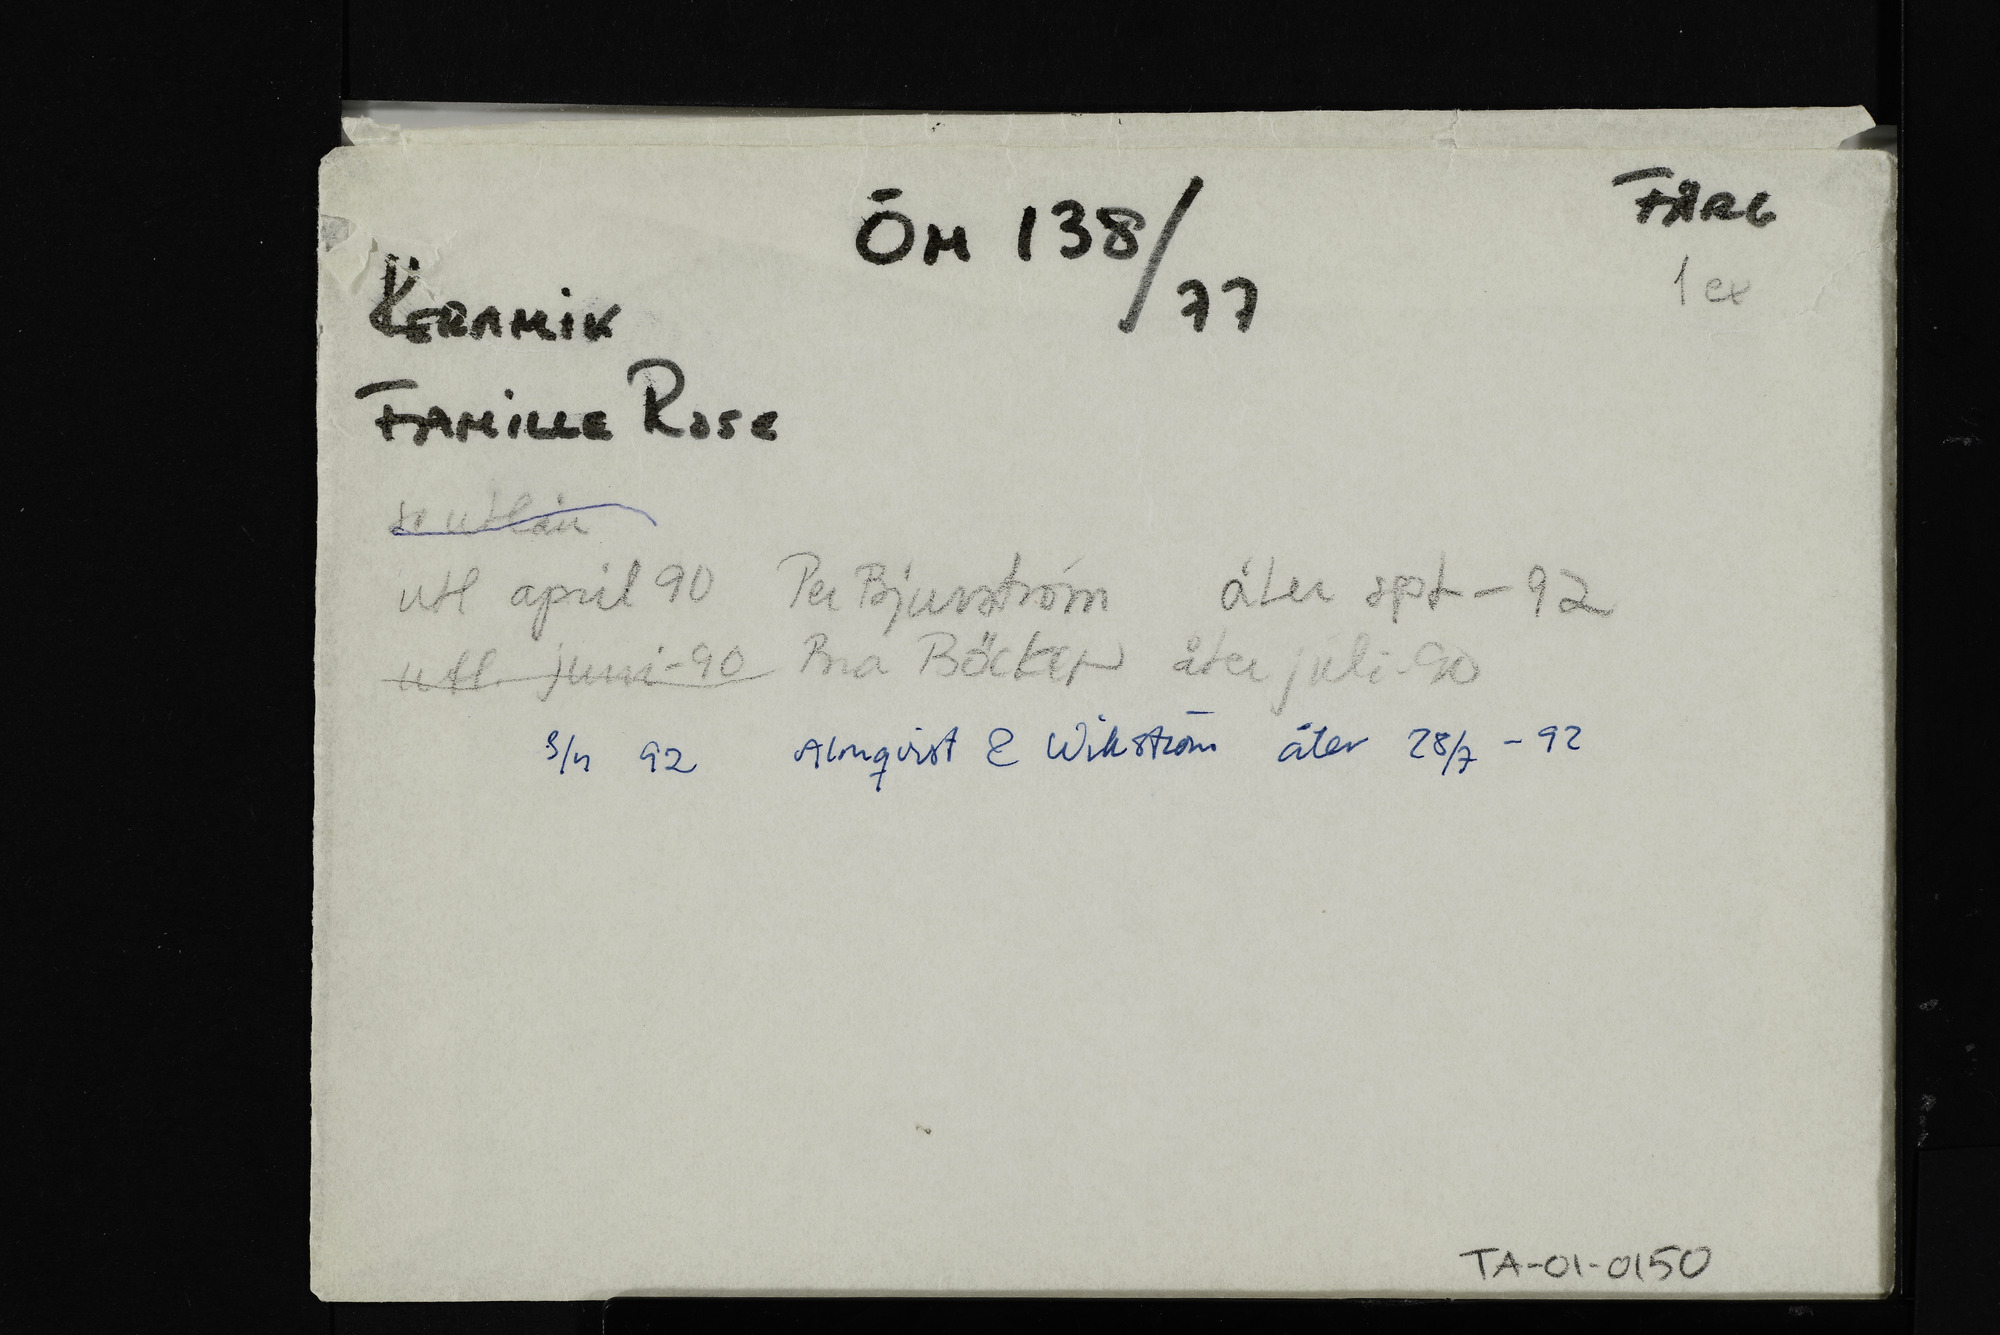 ÖM 138/77
FÄRG
1 ex
KERAMIK
FAMILLE ROSE
se utlån
utl april 90 Per Bjurström åter spt-92
utl. juni-90 Bra Böcker åter juli-90
3/4 92 Almqvist & Wikström åter 28/7 -92
TA-01-0150